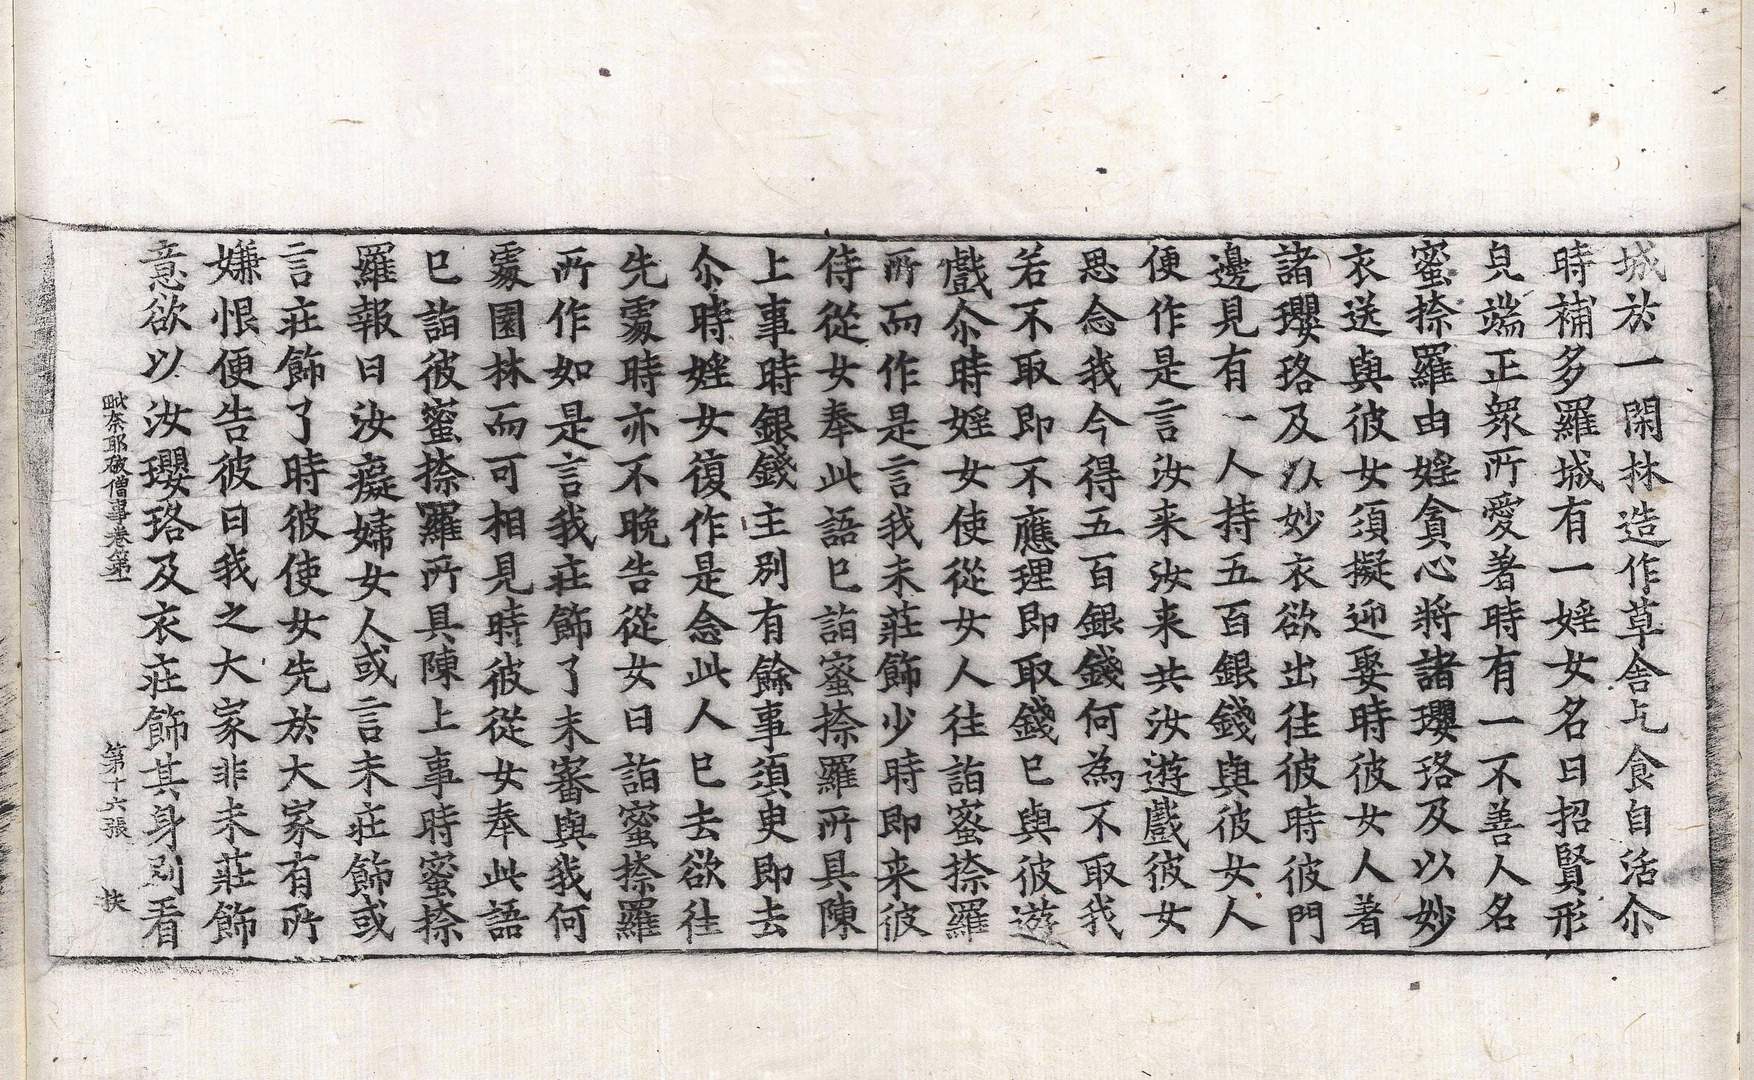 城於一閑林造作草舍乞食自活尒
時補多羅城有一婬女名曰招賢形
皃端正衆所愛著時有一不善人名
蜜捺羅由婬貪心將諸瓔珞及以妙
衣送與彼女須擬迎娶時彼女人著
諸瓔珞及以妙衣欲出往彼時彼門
邊見有一人持五百銀錢與彼女人
便作是言汝来汝来共汝遊戲彼女
思念我今得五百銀錢何為不取我
若不取即不應理即取錢已與彼遊
戲尒時婬女使從女人往詣蜜捺羅
所而作是言我未莊飾少時即来彼
侍從女奉此語已詣蜜捺羅所具陳
上事時銀錢主別有餘事須臾即去
尒時婬女復作是念此人已去欲往
先處時亦不晚告從女曰詣蜜捺羅
所作如是言我莊飾了未審與我何
處園林而可相見時彼從女奉此語
已詣彼蜜捺羅所具陳上事時蜜捺
羅報曰汝癡婦女人或言未莊飾或
言莊飾了時彼使女先於大家有所
嫌恨便告彼曰我之大家非未莊飾
意欲以汝瓔珞及衣莊飾其身別看
毗奈耶破僧事卷第一　第十六張　扶